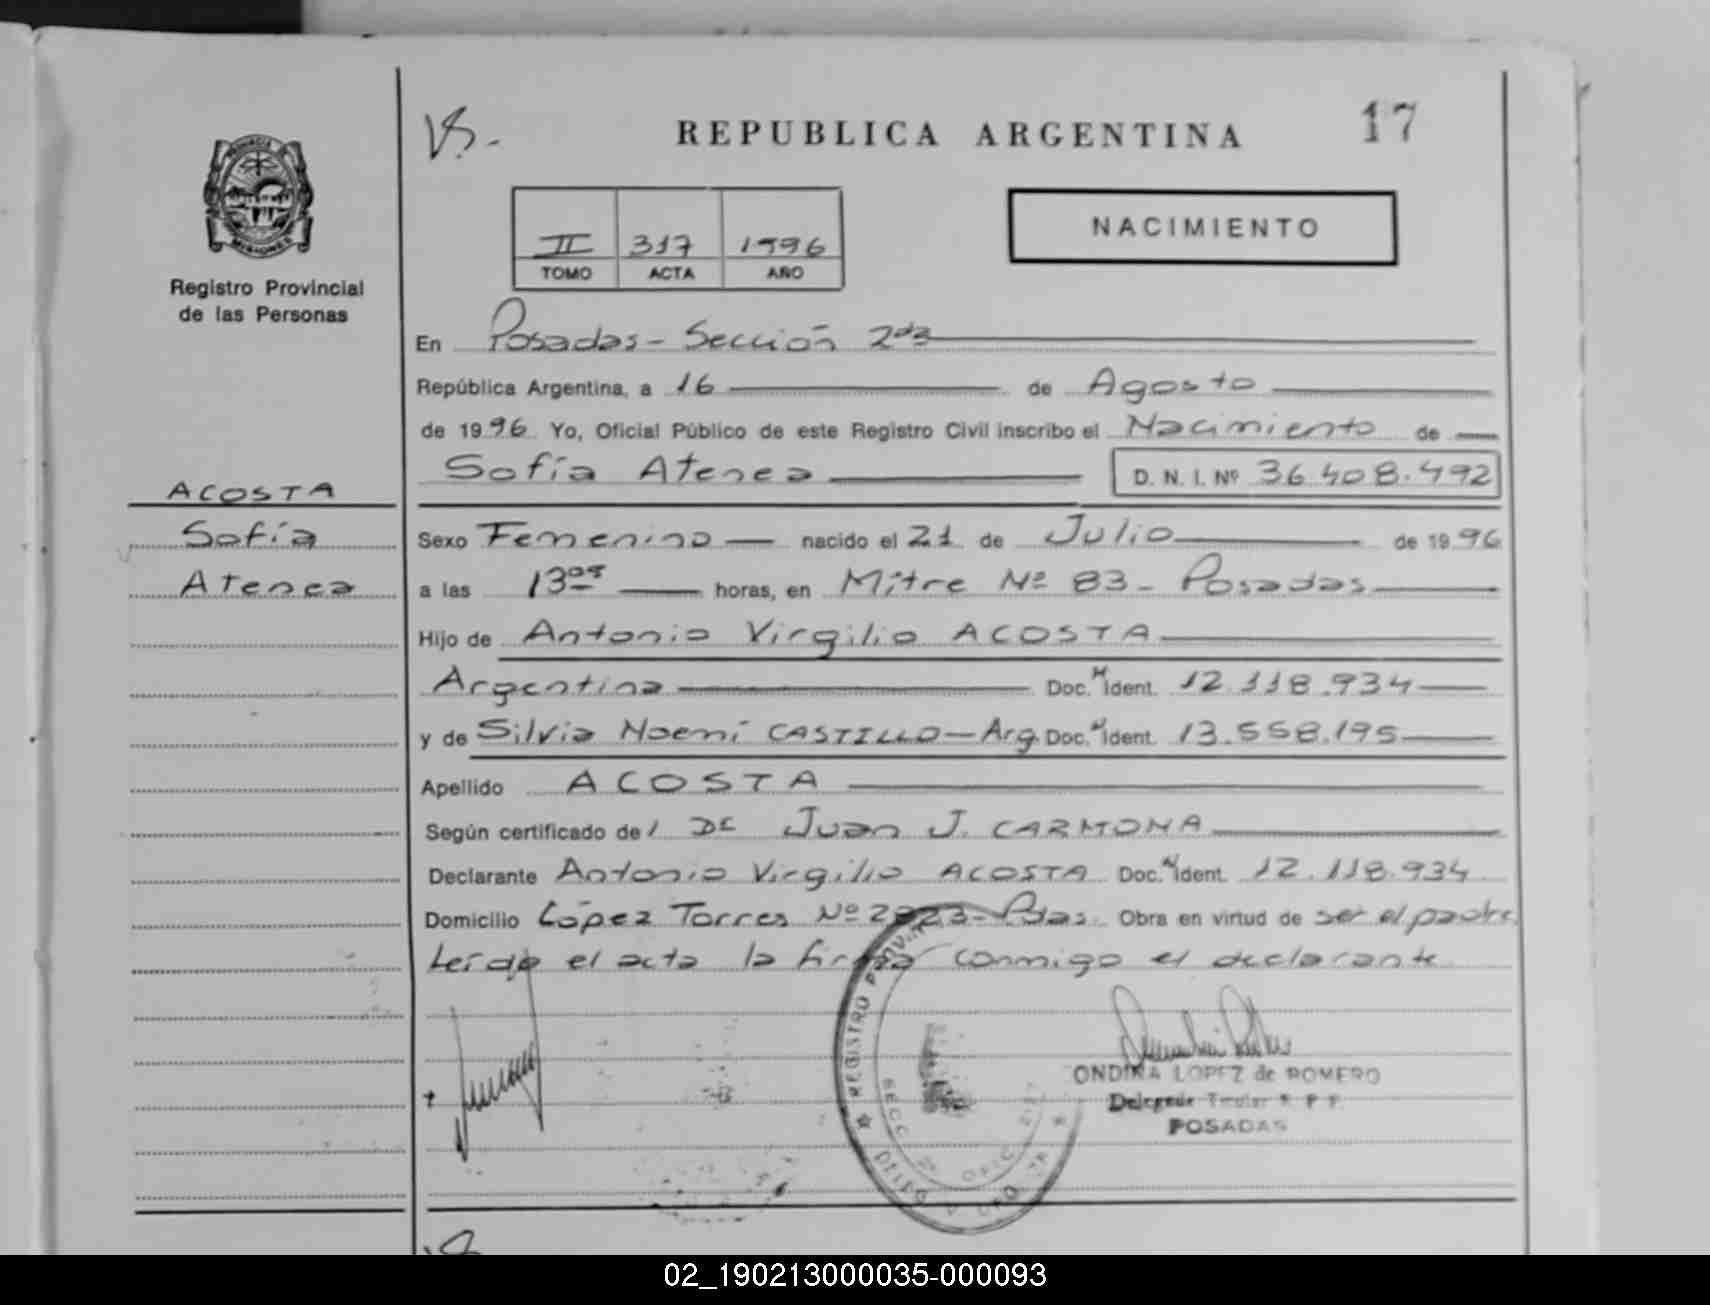 V°B.-
REPUBLICA ARGENTINA
17
PROVINCIA DE
MISIONES
Registro Provincial
de las Personas
II 317 1996
TOMO ACTA AÑO
NACIMIENTO
En Posadas - Sección 2da
República Argentina, a 16 de Agosto
de 1996 Yo, Oficial Público de este Registro Civil inscribo el Nacimiento de
Sofía Atenea D. N. I. Nº 36.408.492
ACOSTA
Sofía
Atenea
Sexo Femenino nacido el 21 de Julio de 1996
a las 13 horas, en Mitre Nº 83 - Posadas
Hijo de Antonio Virgilio ACOSTA
Argentina Doc. Ident. 12.118.934
y de Silvia Noemí CASTILLO - Arg. Doc. Ident. 13.558.195
Apellido ACOSTA
Según certificado de / DE Juan J. CARMONA
Declarante Antonio Virgilio ACOSTA Doc. Ident. 12.118.934
Domicilio López Torres Nº 2823 - Pdas. Obra en virtud de ser el padre
Leída el acta la firma conmigo el declarante
REGISTRO PROV
SECC
ONDINA LOPEZ de ROMERO
Delegada Titular R. P. P.
POSADAS
02_190213000035-000093